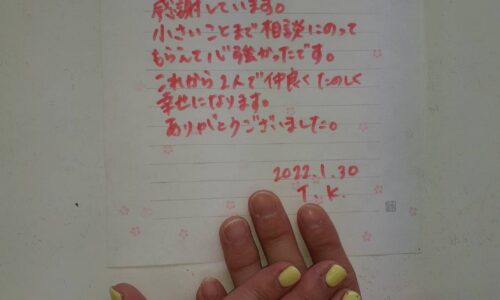 感謝しています。
小さいことまで相談にのって
もらえて心強かったです。
これから2人で仲良くたのしく
幸せになります。
ありがとうございました。
2022.1.30
T.K.